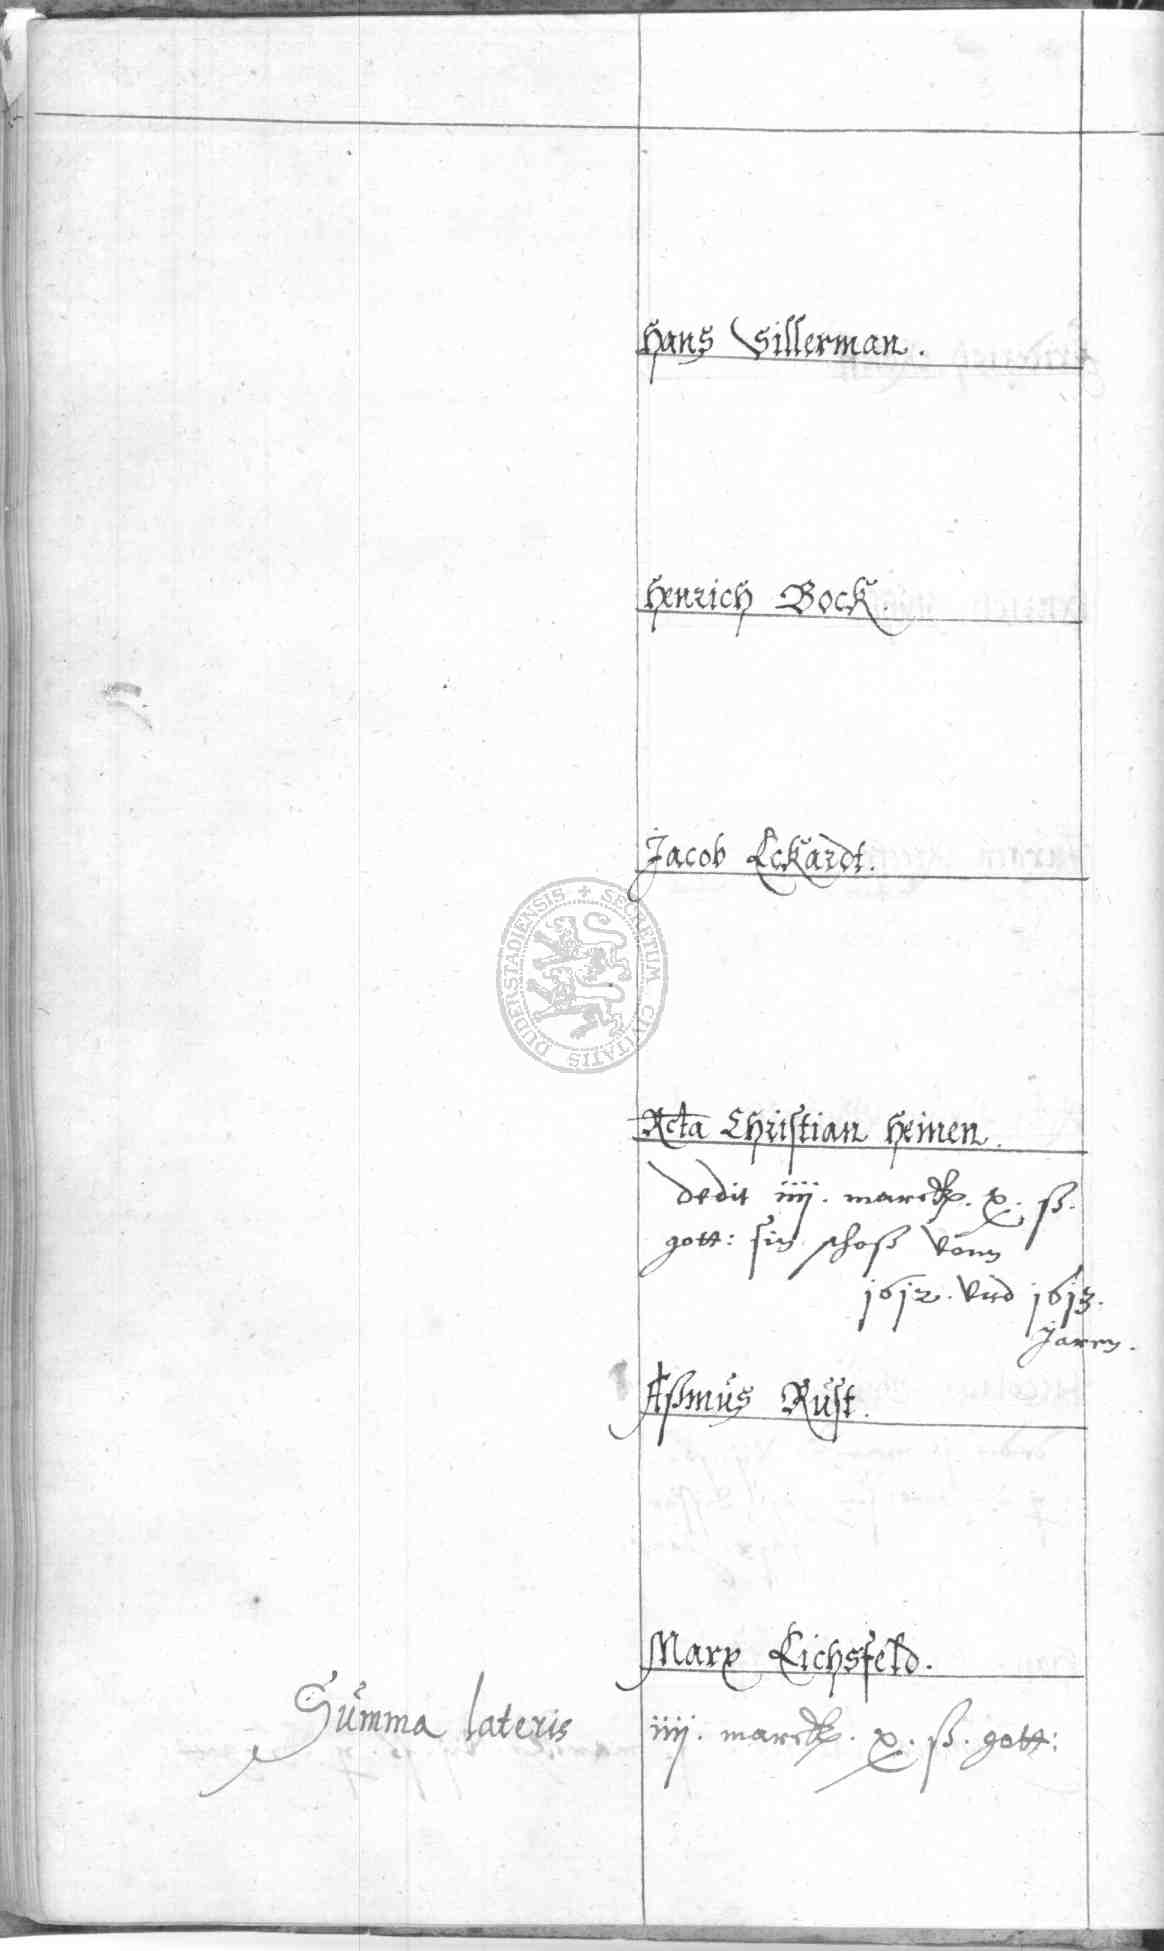 Hans Villerman.
Henrich Bock.
Jacob Eckardt.
SECRETUM CIVITATIS DUDERSTADIENSIS
Acta Christian Heinen.
dedit iiij. marck. x. ß.
gott: sin schoß vonn
1612. vnd 1613.
Jaren.
Aßmus Rust.
Marx Eichsfeld.
Summa lateris iiij. marck. x. ß. gott: